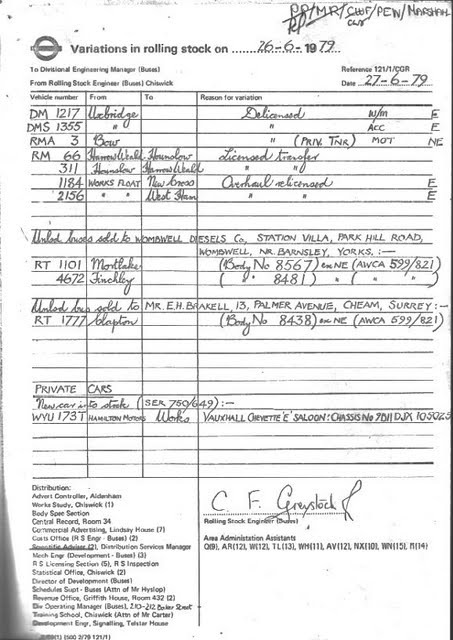 PP/MR/CWF/PEW/MARSHALL
Variations in rolling stock on 26-6-1979
To Divisional Engineering Manager (Buses) Reference 121/1/CGR
From Rolling Stock Engineer (Buses) Chiswick Date 27-6-79
Vehicle number From To Reason for variation
DM 1217 Uxbridge Delicensed W/M E
DMS 1355 " " ACC E
RMA 3 Bow " (PRIV. TNR) MOT NE
RM 66 Harrow Weald Hounslow Licensed transfer
311 Hounslow Harrow Weald " "
1184 WORKS FLOAT New Cross Overhaul relicensed E
2156 " " West Ham " " E
Unlsd buses sold to WOMBWELL DIESELS Co, STATION VILLA, PARK HILL ROAD,
WOMBWELL, NR. BARNSLEY, YORKS. :—
RT 1101 Mortlake (Body No 8567) ex NE (AWCA 599/821)
4672 Finchley ( " " 8481) " ( " " )
Unlsd bus sold to MR. E.H. BRAKELL, 13, PALMER AVENUE, CHEAM, SURREY :—
RT 1777 Clapton (Body No 8438) ex NE (AWCA 599/821)
PRIVATE CARS
New car into stock (SER 750/649) :—
WYU 173T HAMILTON MOTORS Works VAUXHALL CHEVETTE 'E' SALOON: CHASSIS No 9D11 DJX 105025
Distribution:
Advert Controller, Aldenham
Works Study, Chiswick (1)
Body Spec Section
Central Record, Room 34
Commercial Advertising, Lindsay House (7)
Costs Office (R S Engr - Buses) (2)
Scientific Adviser (2), Distribution Services Manager
Mech Engr (Development - Buses) (3)
R S Licensing Section (5), R S Inspection
Statistical Office, Chiswick (2)
Director of Development (Buses)
Schedules Supt - Buses (Attn of Mr Hyslop)
Revenue Office, Griffith House, Room 432 (2)
Div Operating Manager (Buses), 210-212 Baker Street
Training School, Chiswick (Attn of Mr Carter)
Development Engr, Signalling, Telstar House
(500 2/79 121/1)
C. F. Greystock
Rolling Stock Engineer (Buses)
Area Administation Assistants
Q(9), AR(12), W(12), TL(13), WH(11), AV(12), NX(10), WN(15), M(14)